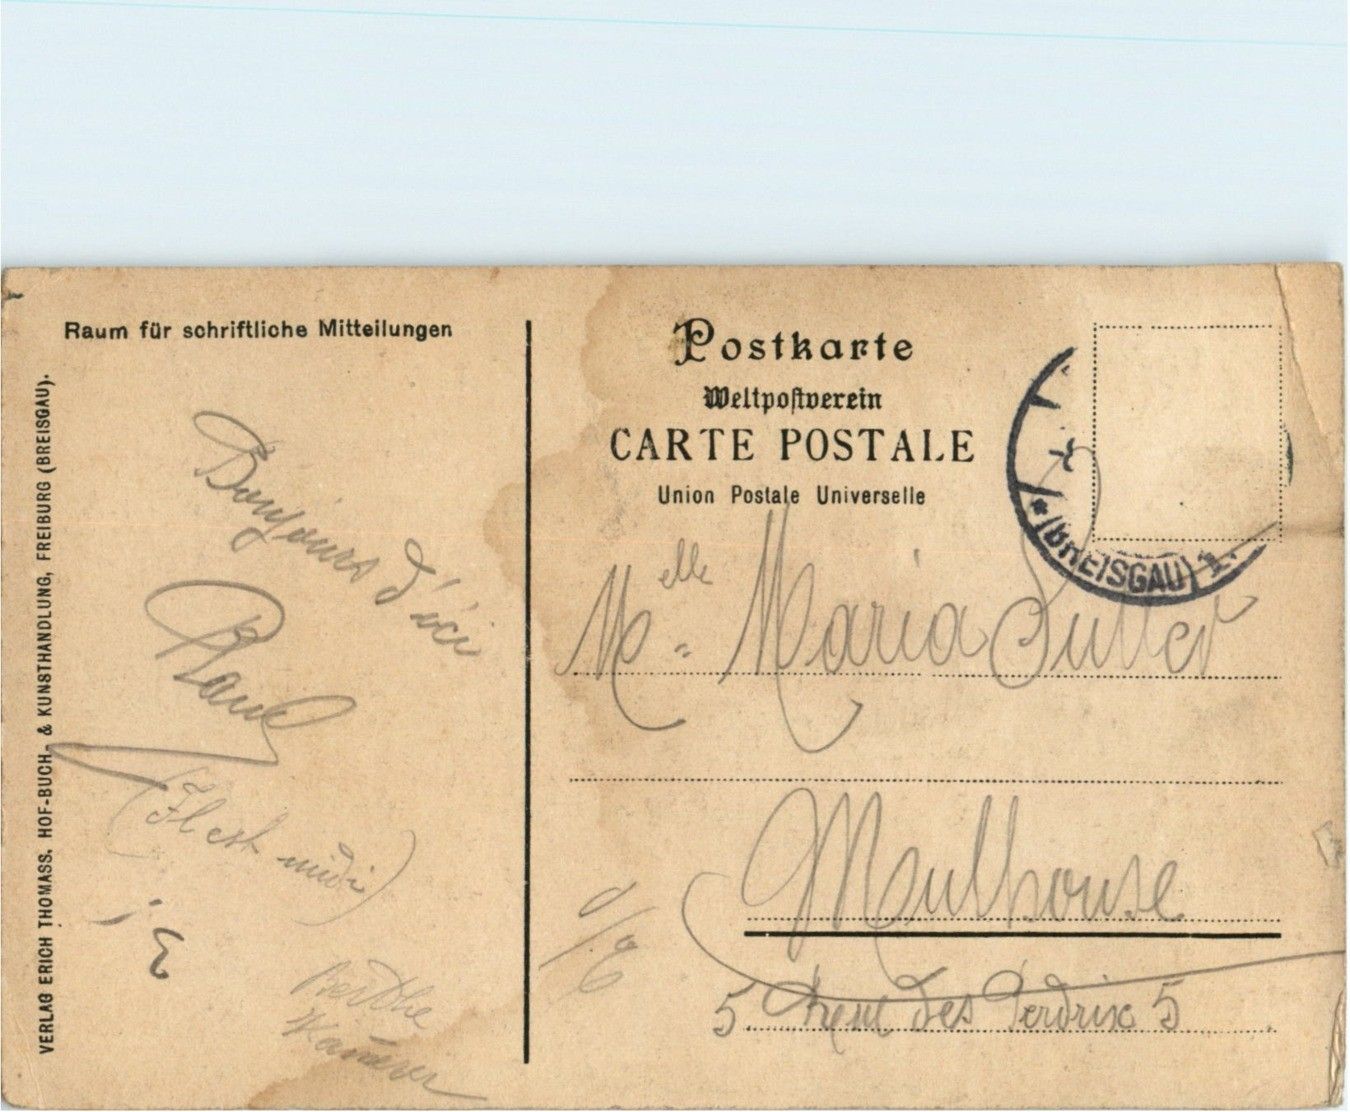 Raum für schriftliche Mitteilungen
VERLAG ERICH THOMASS, HOF-BUCH- & KUNSTHANDLUNG, FREIBURG (BREISGAU).
Bonjours d'ici
Paul
(Il est midi)
Berthe
Postkarte
Weltpostverein
CARTE POSTALE
Union Postale Universelle
*(BREISGAU) 1.
Melle Maria Sutter
Mulhouse
d/E
5. Rue des Perdrix 5